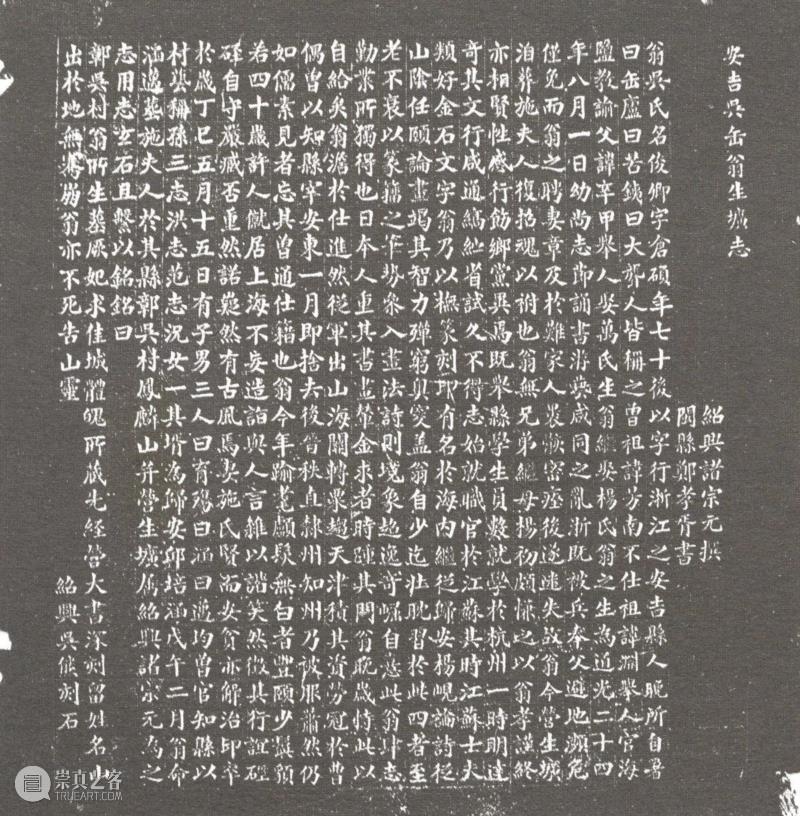 安吉吳缶翁生壙志
紹興諸宗元撰
閩縣鄭孝胥書
翁吳氏名俊卿字倉碩年七十後以字行浙江之安吉縣人晚所自署
曰缶廬曰苦鐵曰大聾人皆稱之曾祖諱芳南不仕祖諱淵舉人官海
鹽教諭父諱辛甲舉人娶萬氏生翁繼娶楊氏翁之生為道光二十四
年八月一日幼尚志節誦書游藝咸同之亂浙既被兵奉父避地瀕危
僅免而翁之聘妻章及於難家人裹骸密瘞後遂迷失故翁今營生壙
洎葬施夫人復招魂以祔也翁無兄弟繼母楊初頗慊之以翁孝謹終
亦相賢性感行飭鄉黨異焉既舉縣學生員數就學於杭州一時明達
奇其文行咸通縞紵省試久不得志始就職官於江蘇其時江蘇士夫
類好金石文字翁乃以橅篆刻印有名於海內繼從歸安楊峴論詩從
山陰任頤論畫竭其智力殫窮奧窔蓋翁自少迄壯耽習於此四者至
老不衰以篆籀之筆勢參入畫法詩則境象超逸奇崛自憙此翁肆志
勤業所獨得也日本人重其書畫輦金求者時踵其門翁晚歲恃此以
自給矣翁澹於仕進然從軍出山海關轉粟趨天津積其資勞冠於曹
偶曾以知縣宰安東一月即捨去後晉秩直隸州知州乃被服蕭然仍
如儒素見者忘其曾通仕籍也翁今年踰耄顱髮無白者豐頤少鬚貌
若四十歲許人僦居上海不妄造詣與人言雜以諧笑然徵其行誼磑
硨自守嚴臧否重然諾嶷然有古風焉妻施氏賢而安貧亦解治印卒
於歲丁巳五月十五日有子男三人曰育殤曰涵曰邁均曾官知縣以
村藝稱孫三志洪志范志況女一其壻為歸安邱培涵戊午二月翁命
涵邁葬施夫人於其縣鄣吳村鳳麟山并營生壙屬紹興諸宗元為之
志用志玄石且繫以銘銘曰
鄣吳村翁所生墓厥妃求佳城體魄所藏先經營大書深刻留姓名山
出於地無騫崩翁亦不死告山靈
紹興吳熊刻石
崇真艺客
TRUEART.COM